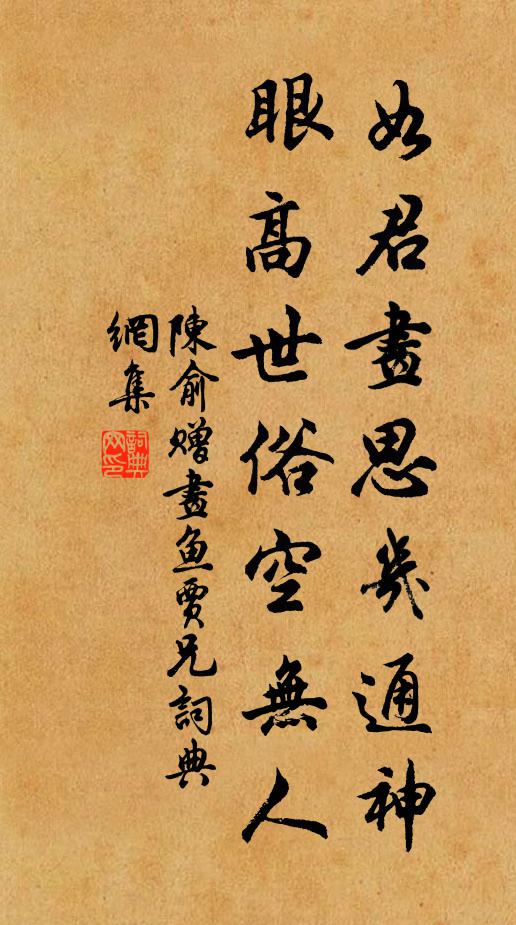 如君畫思幾通神
眼高世俗空無人
陳俞贈畫魚賈兄詞典
網集
詞典
网印